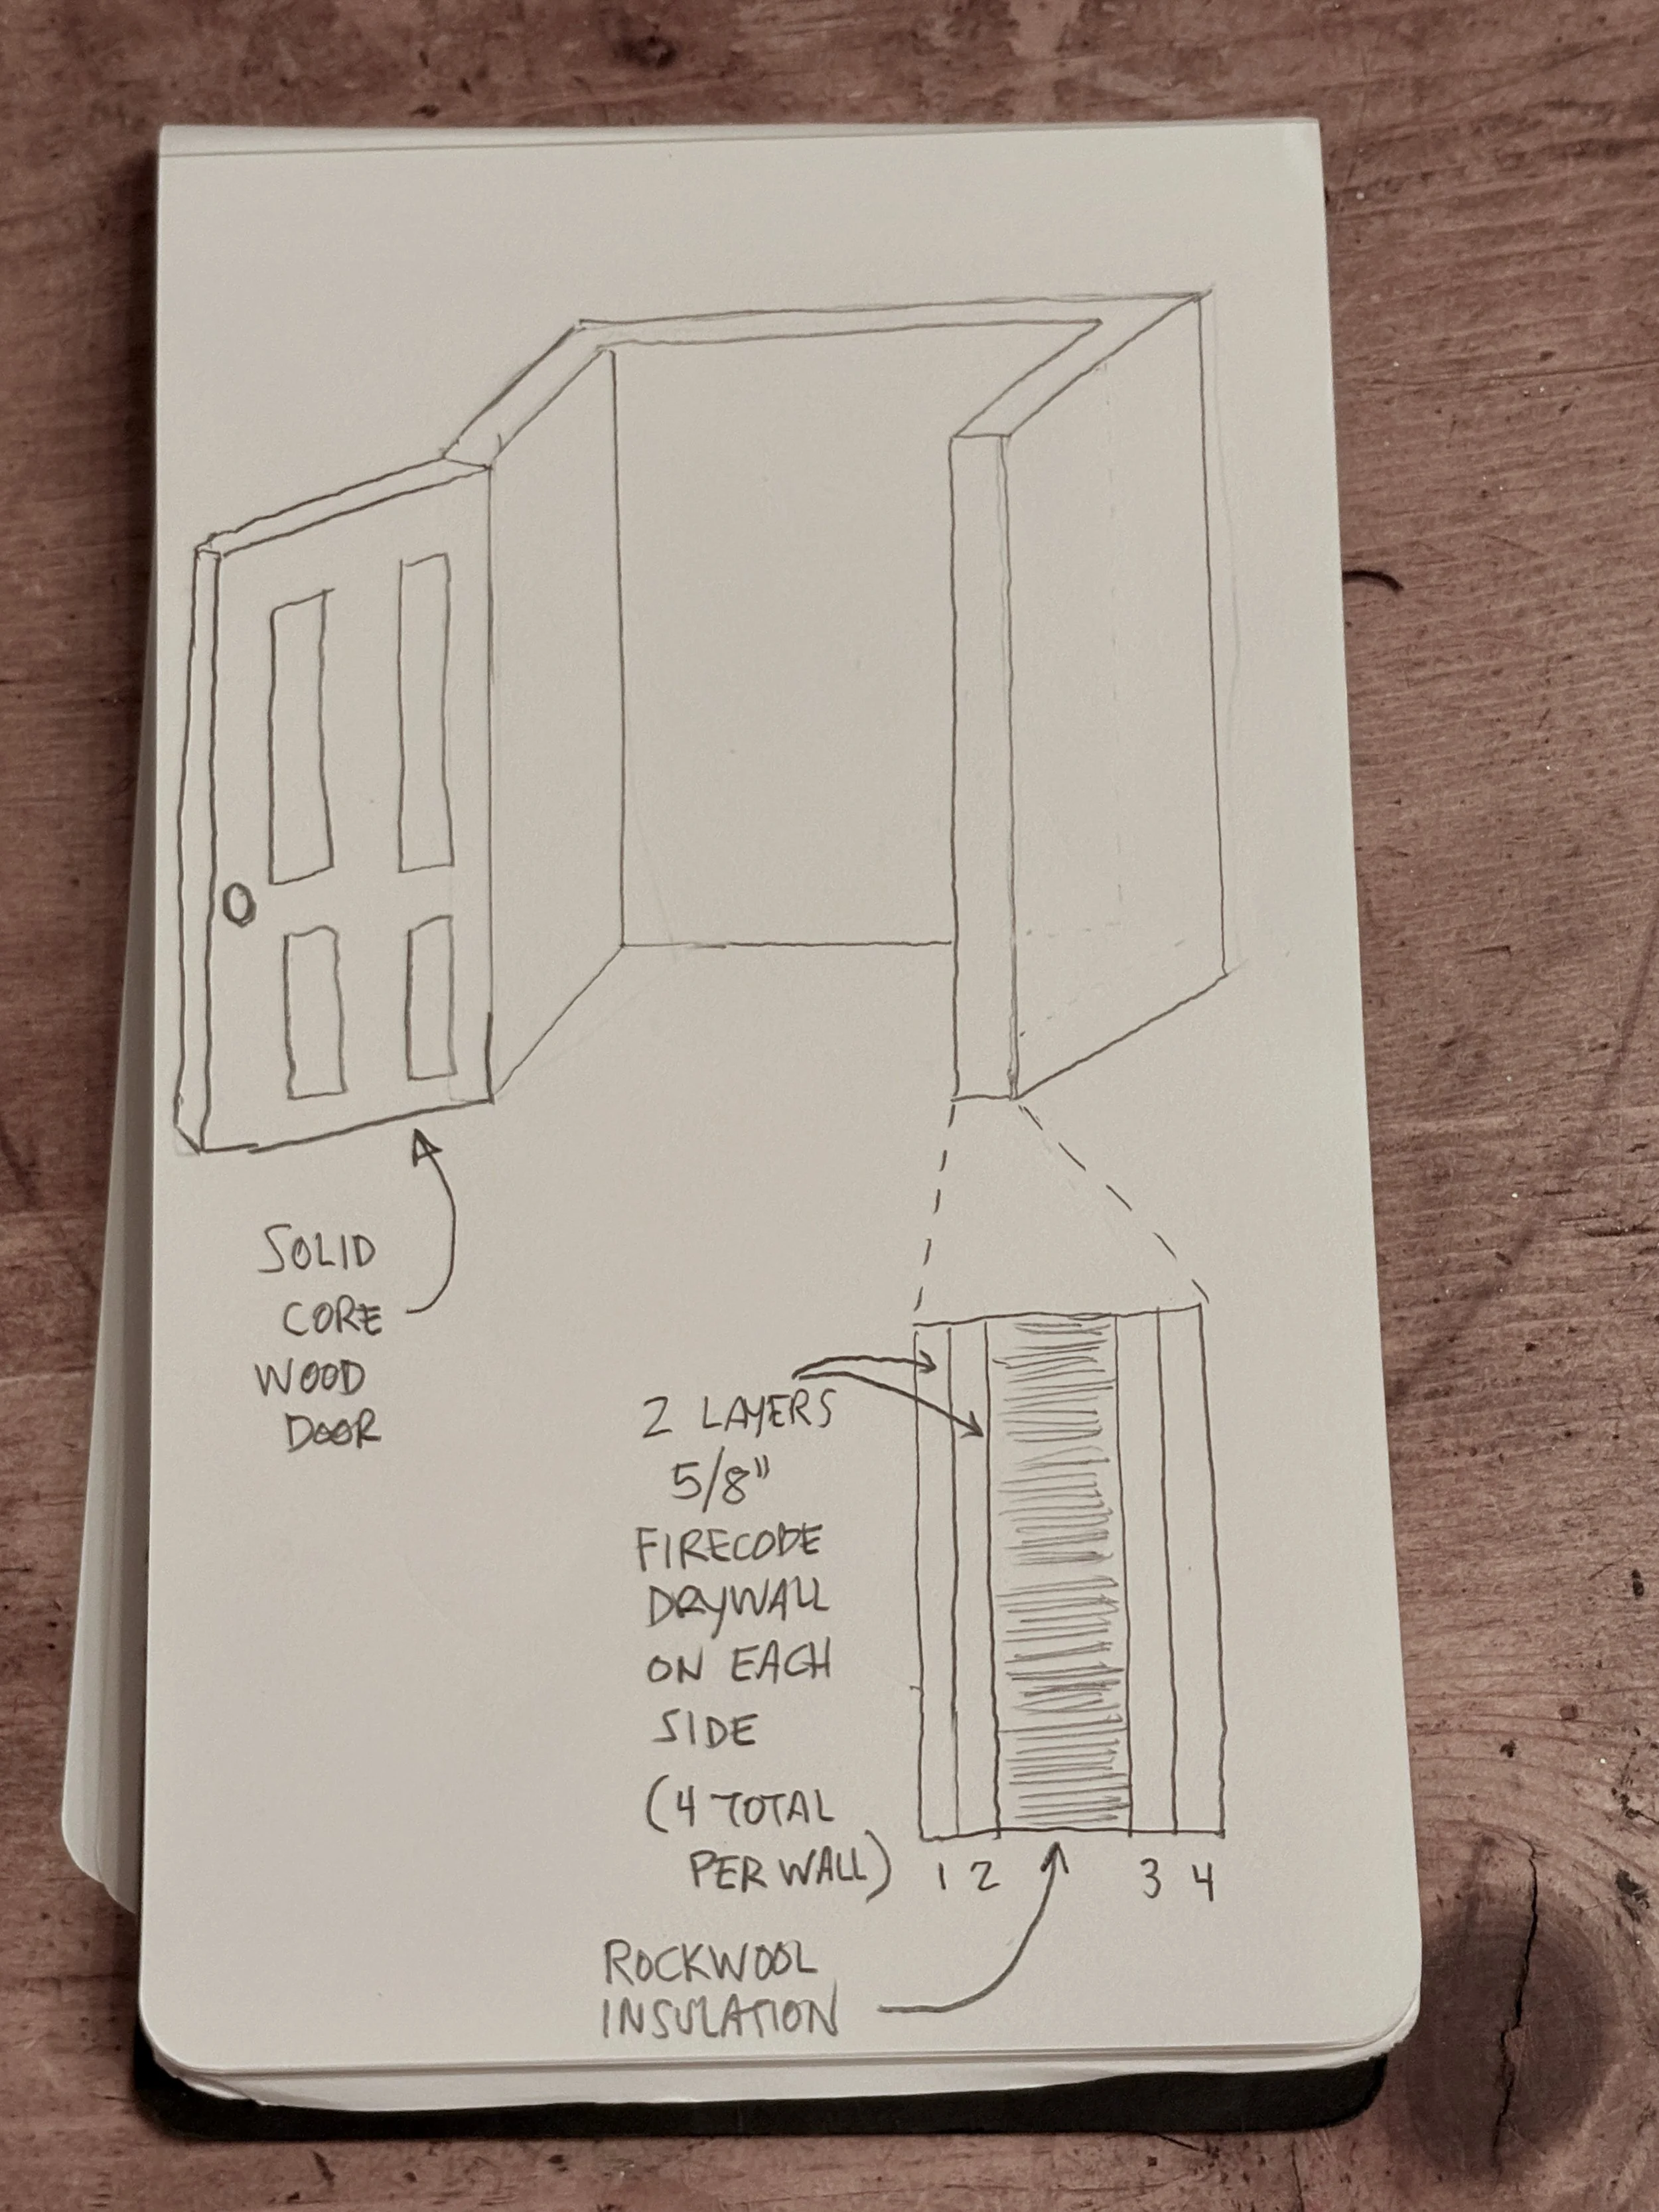 SOLID
CORE
WOOD
DOOR
2 LAYERS
5/8"
FIRECODE
DRYWALL
ON EACH
SIDE
(4 TOTAL
PER WALL)
1 2 3 4
ROCKWOOL
INSULATION